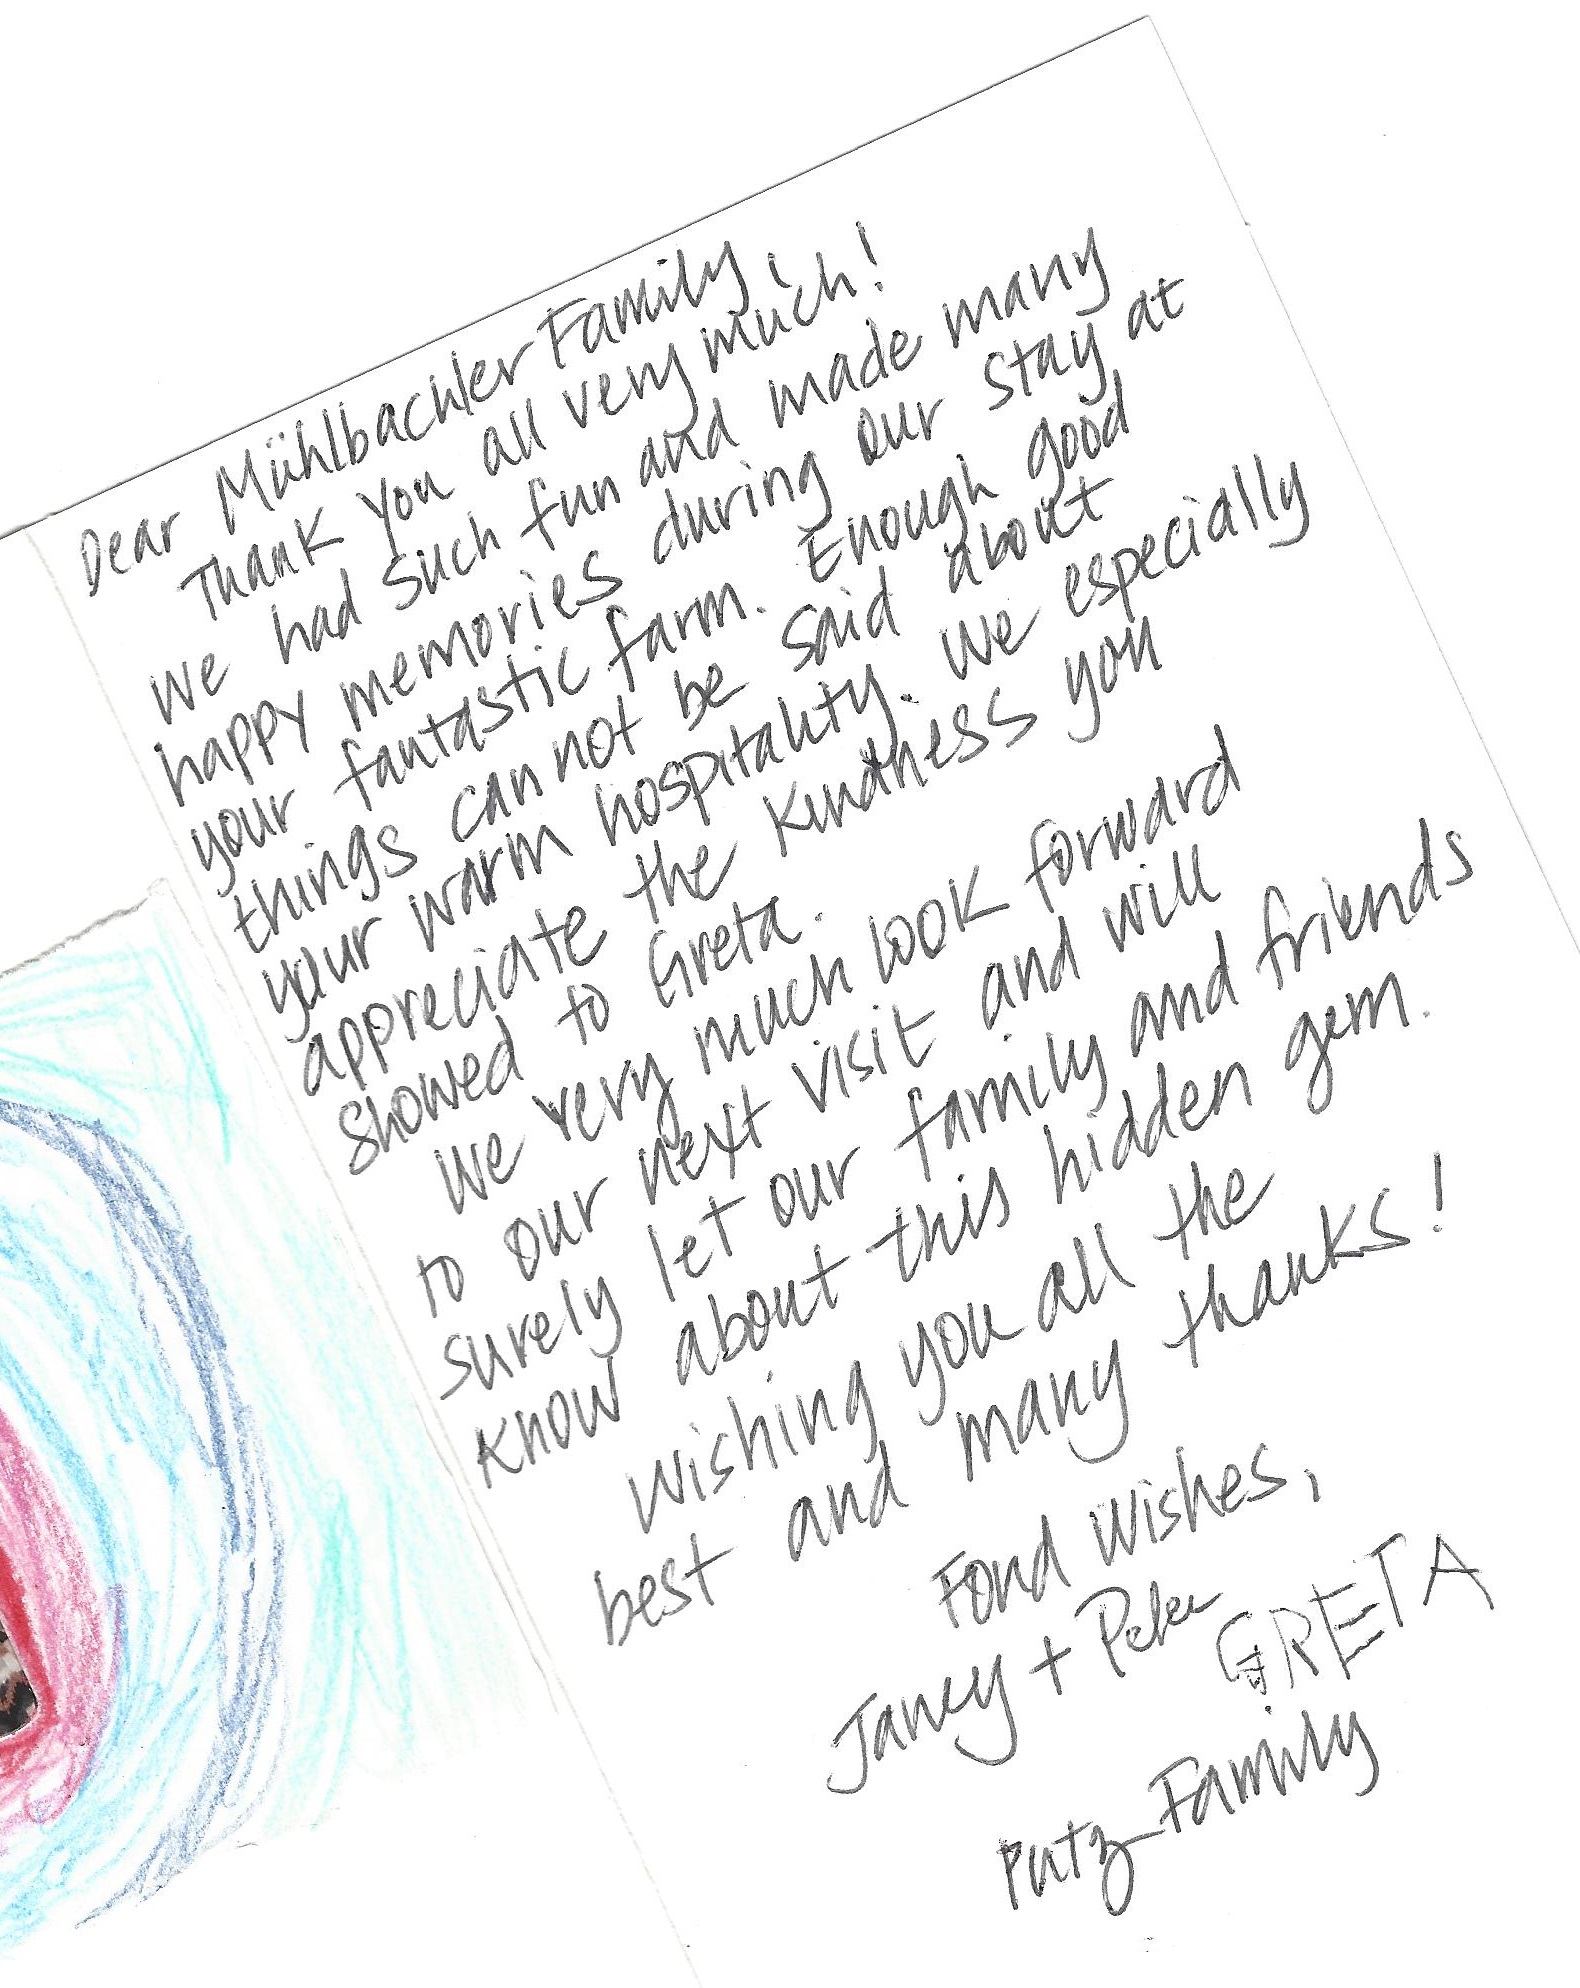 Dear Mühlbachler Family,
Thank you all very much!
We had such fun and made many
happy memories during our stay at
your fantastic farm. Enough good
things can not be said about
your warm hospitality. We especially
appreciate the kindness you
showed to Greta.
We very much look forward
to our next visit and will
surely let our family and friends
know about this hidden gem.
Wishing you all the
best and many thanks!
Fond Wishes,
Janey + Peter
GRETA
Putz Family